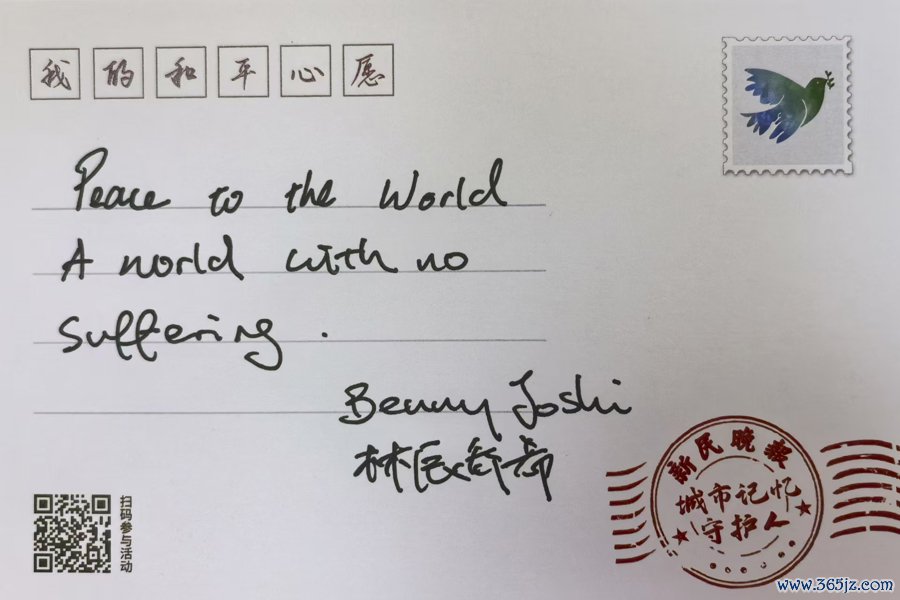 我的和平心愿
Peace to the World
A world with no
suffering.
Benny Joshi
林民
扫码参与活动
新民晚报
城市记忆
守护人
www.365jz.com